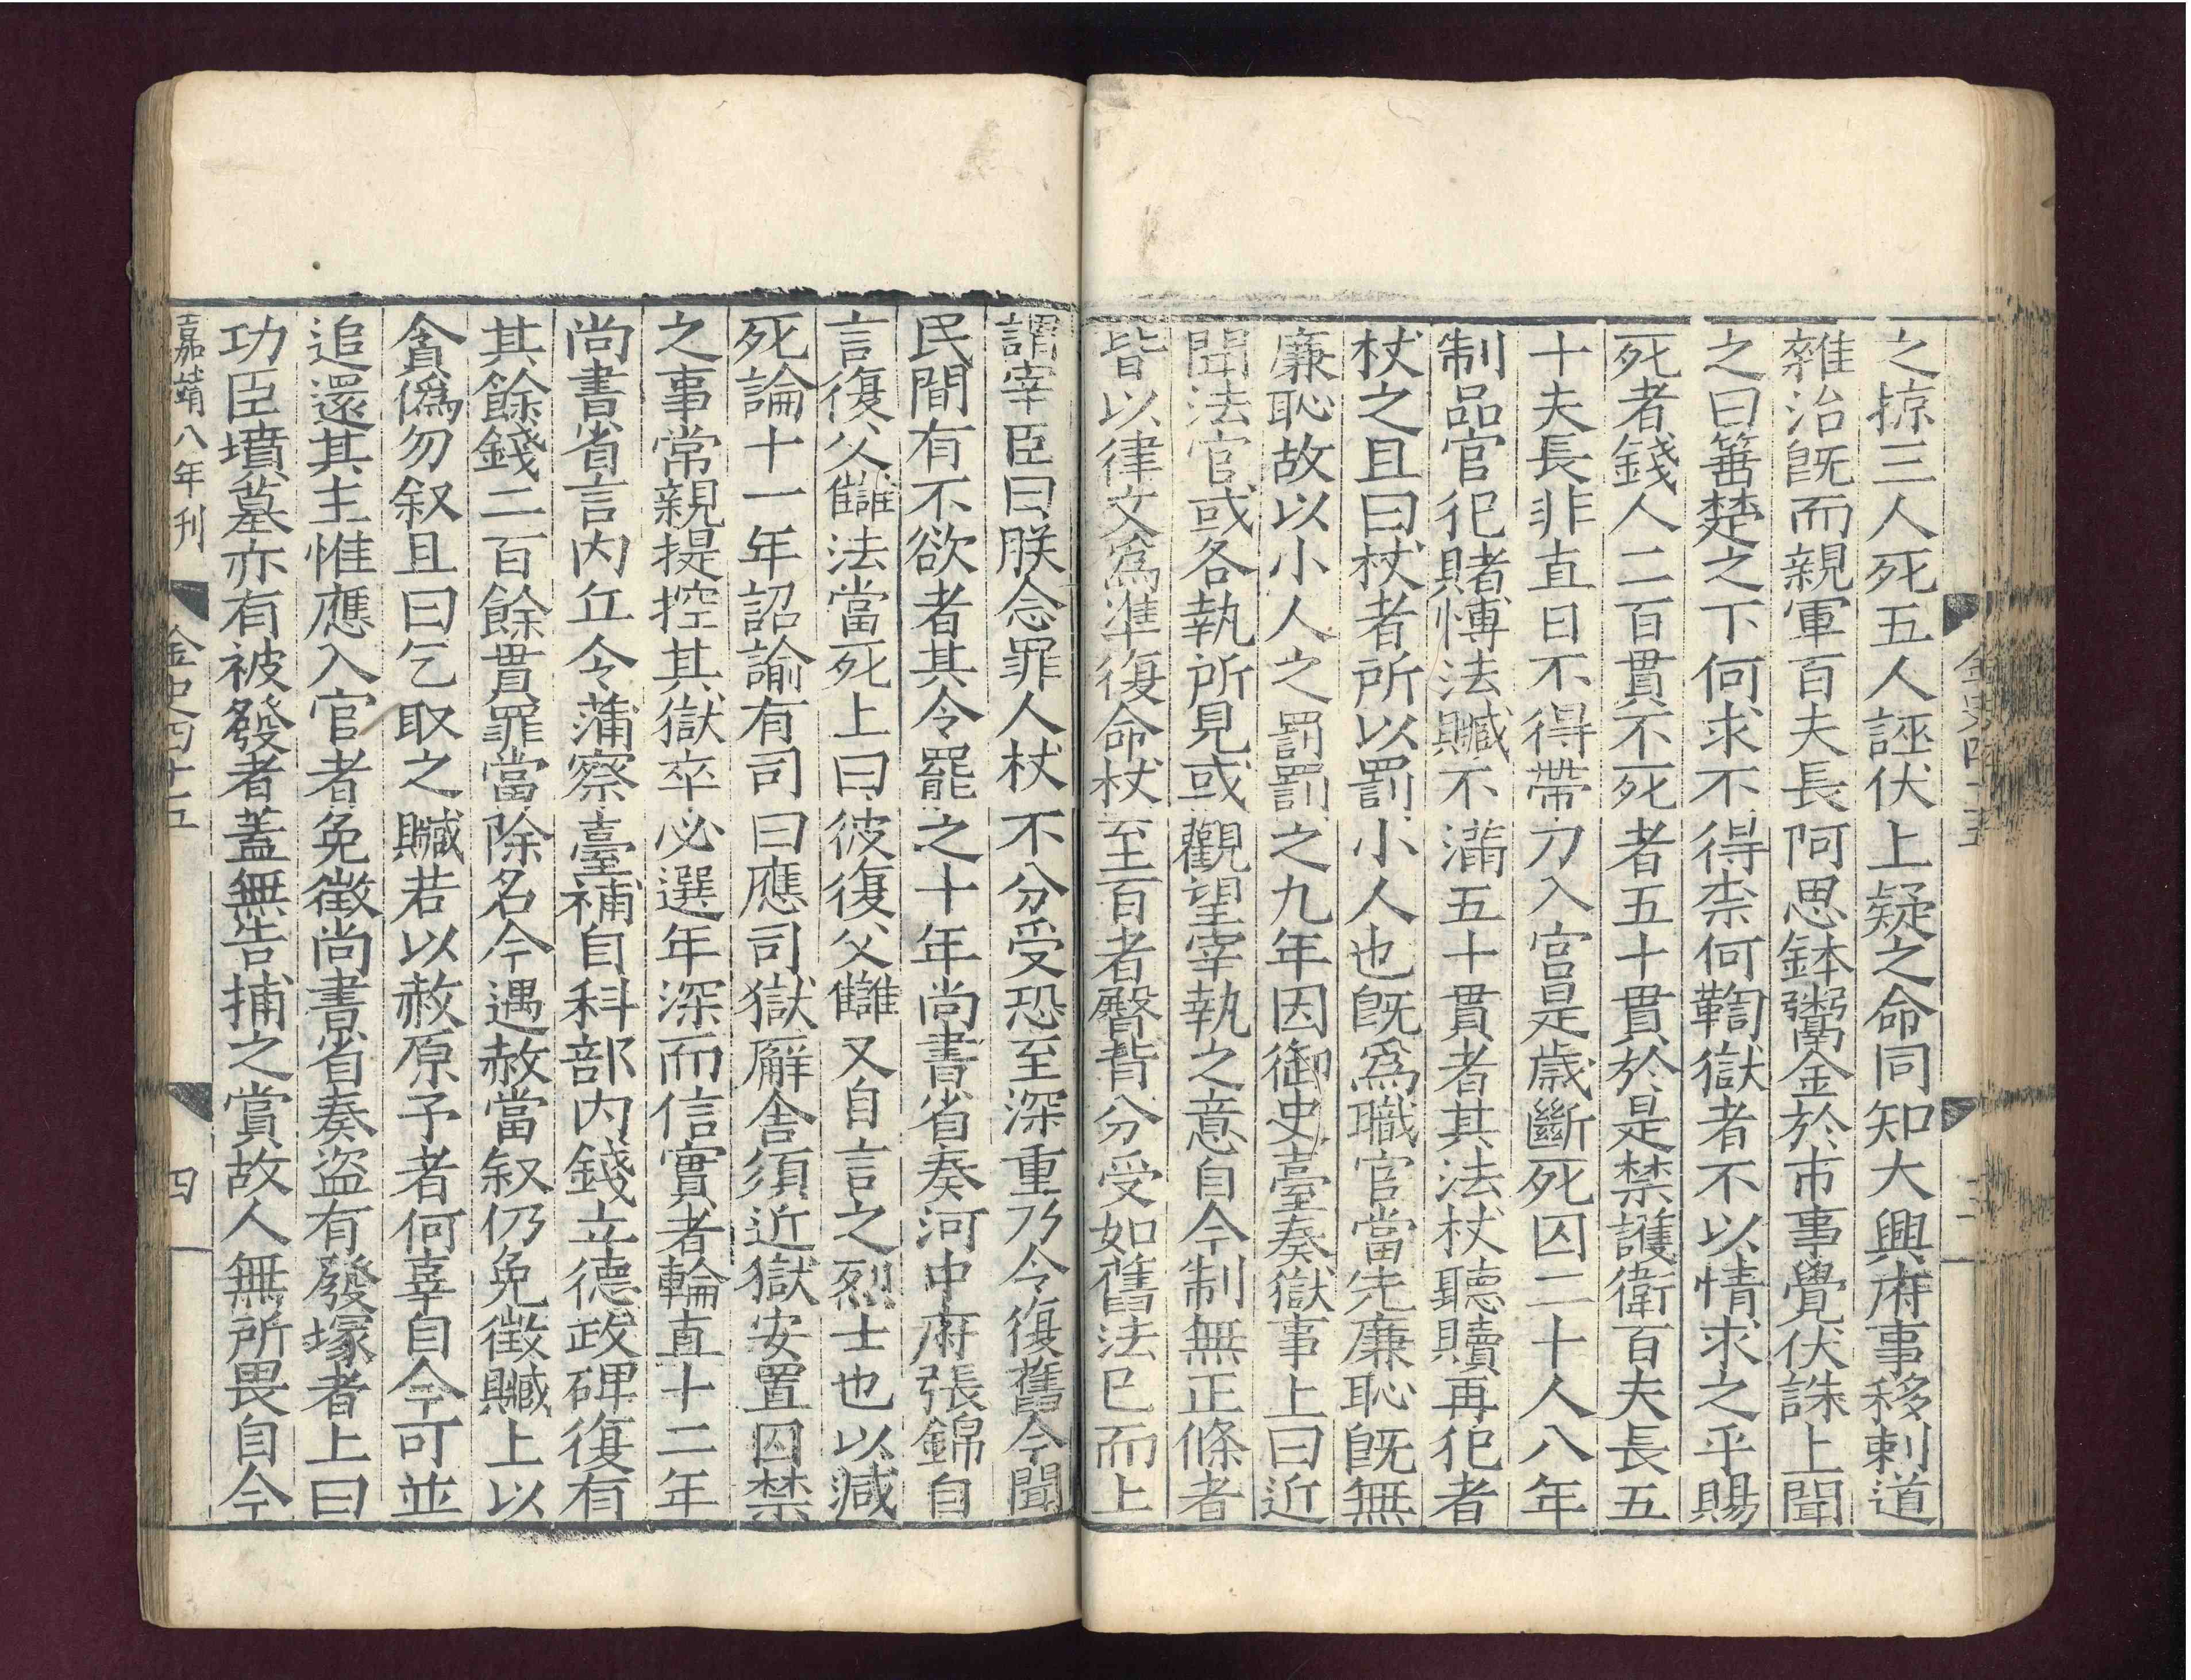 之掠三人死五人誣伏上疑之命同知大興府事移剌道
雜治旣而親軍百夫長阿思鉢鬻金於市事覺伏誅上聞
之曰箠楚之下何求不得柰何鞫獄者不以情求之乎賜
死者錢人二百貫不死者五十貫於是禁護衛百夫長五
十夫長非直日不得帶刀入宮是歲斷死囚二十人八年
制品官犯賭愽法贓不滿五十貫者其法杖聽贖再犯者
杖之且曰杖者所以罰小人也旣爲職官當先廉恥旣無
廉恥故以小人之罰罰之九年因御史臺奏獄事上曰近
聞法官或各執所見或觀望宰執之意自今制無正條者
皆以律文爲準復命杖至百者臀背分受如舊法已而上
謂宰臣曰朕念罪人杖不分受恐至深重乃令復舊今聞
民間有不欲者其令罷之十年尚書省奏河中府張錦自
言復父讎法當死上曰彼復父讎又自言之烈士也以減
死論十一年詔諭有司曰應司獄廨舎須近獄安置囚禁
之事常親提控其獄卒必選年深而信實者輪直十二年
尚書省言内丘令蒲察臺補自科部内錢立德政碑復有
其餘錢二百餘貫罪當除名今遇赦當叙仍免徵贓上以
貪僞勿叙且曰乞取之贓若以赦原予者何辜自今可並
追還其主惟應入官者免徵尚書省奏盜有發塚者上曰
功臣墳墓亦有被發者蓋無告捕之賞故人無所畏自今
嘉靖八年刊
金史四十五
四